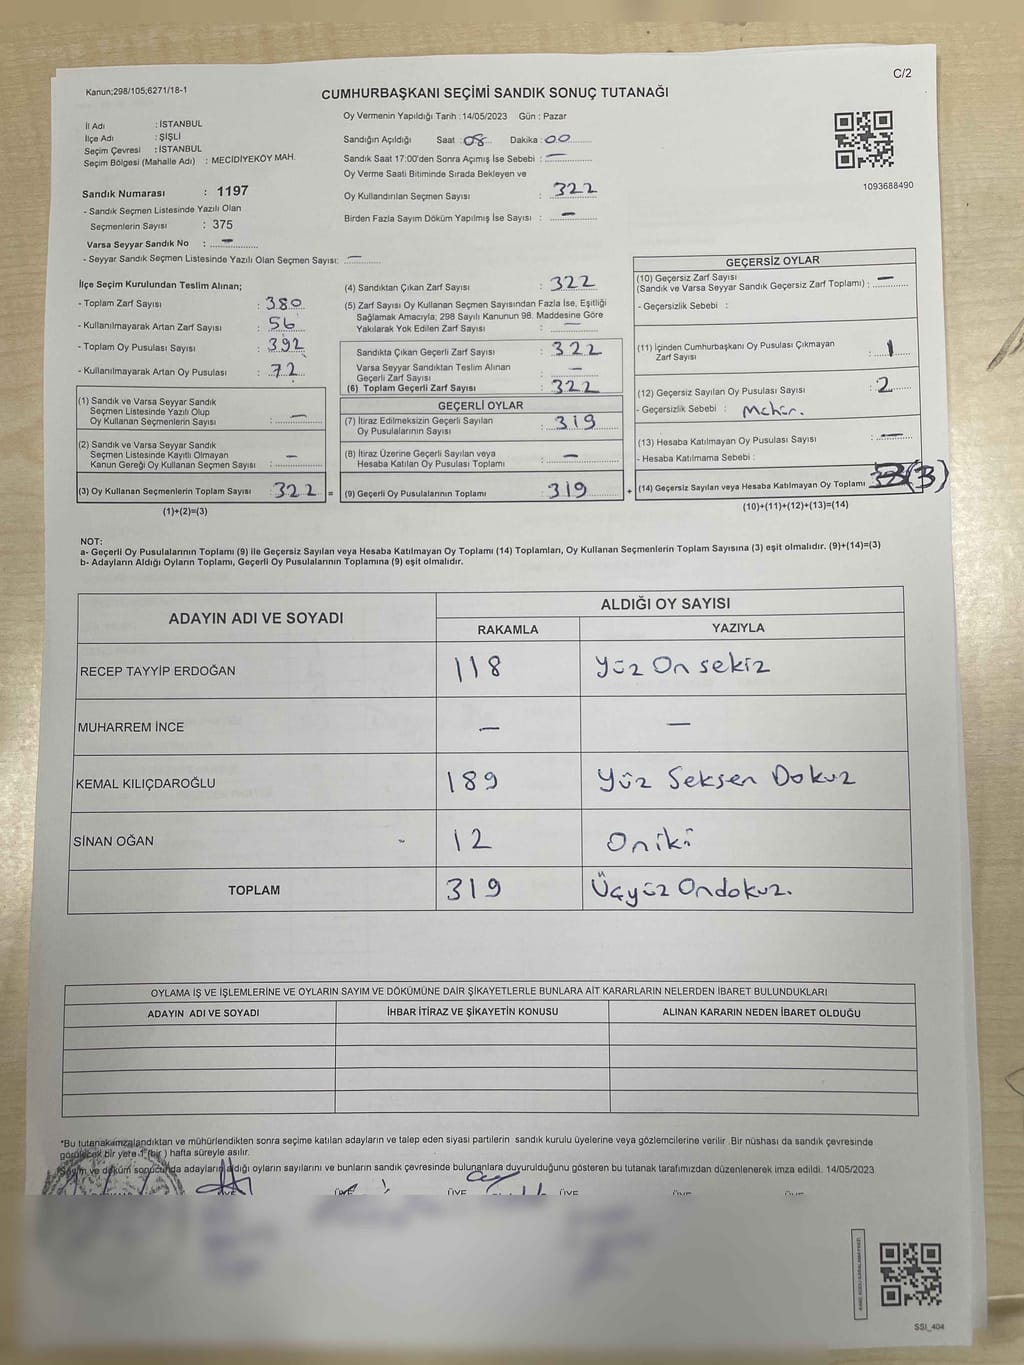 C/2
Kanun;298/105;6271/18-1
CUMHURBAŞKANI SEÇİMİ SANDIK SONUÇ TUTANAĞI
İl Adı : İSTANBUL
İlçe Adı : ŞİŞLİ
Seçim Çevresi : İSTANBUL
Seçim Bölgesi (Mahalle Adı) : MECİDİYEKÖY MAH.
Sandık Numarası : 1197
- Sandık Seçmen Listesinde Yazılı Olan
Seçmenlerin Sayısı : 375
Varsa Seyyar Sandık No : —
- Seyyar Sandık Seçmen Listesinde Yazılı Olan Seçmen Sayısı: —
Oy Vermenin Yapıldığı Tarih : 14/05/2023 Gün : Pazar
Sandığın Açıldığı Saat : 08 Dakika : 00
Sandık Saat 17:00'den Sonra Açımış İse Sebebi : —
Oy Verme Saati Bitiminde Sırada Bekleyen ve
Oy Kullandırılan Seçmen Sayısı : 322
Birden Fazla Sayım Döküm Yapılmış İse Sayısı : —
1093688490
İlçe Seçim Kurulundan Teslim Alınan;
- Toplam Zarf Sayısı : 380
- Kullanılmayarak Artan Zarf Sayısı : 56
- Toplam Oy Pusulası Sayısı : 392
- Kullanılmayarak Artan Oy Pusulası : 72
(1) Sandık ve Varsa Seyyar Sandık
Seçmen Listesinde Yazılı Olup
Oy Kullanan Seçmenlerin Sayısı : —
(2) Sandık ve Varsa Seyyar Sandık
Seçmen Listesinde Kayıtlı Olmayan
Kanun Gereği Oy Kullanan Seçmen Sayısı : —
(3) Oy Kullanan Seçmenlerin Toplam Sayısı : 322 =
(1)+(2)=(3)
(4) Sandıktan Çıkan Zarf Sayısı : 322
(5) Zarf Sayısı Oy Kullanan Seçmen Sayısından Fazla İse, Eşitliği
Sağlamak Amacıyla; 298 Sayılı Kanunun 98. Maddesine Göre
Yakılarak Yok Edilen Zarf Sayısı : —
Sandıkta Çıkan Geçerli Zarf Sayısı : 322
Varsa Seyyar Sandıktan Teslim Alınan
Geçerli Zarf Sayısı : —
(6) Toplam Geçerli Zarf Sayısı : 322
GEÇERLİ OYLAR
(7) İtiraz Edilmeksizin Geçerli Sayılan
Oy Pusulalarının Sayısı : 319
(8) İtiraz Üzerine Geçerli Sayılan veya
Hesaba Katılan Oy Pusulası Toplamı : —
(9) Geçerli Oy Pusulalarının Toplamı : 319 +
GEÇERSİZ OYLAR
(10) Geçersiz Zarf Sayısı
(Sandık ve Varsa Seyyar Sandık Geçersiz Zarf Toplamı) : —
- Geçersizlik Sebebi :
(11) İçinden Cumhurbaşkanı Oy Pusulası Çıkmayan
Zarf Sayısı : 1
(12) Geçersiz Sayılan Oy Pusulası Sayısı : 2
- Geçersizlik Sebebi :
(13) Hesaba Katılmayan Oy Pusulası Sayısı : —
- Hesaba Katılmama Sebebi :
(14) Geçersiz Sayılan veya Hesaba Katılmayan Oy Toplamı (3)
(10)+(11)+(12)+(13)=(14)
NOT:
a- Geçerli Oy Pusulalarının Toplamı (9) ile Geçersiz Sayılan veya Hesaba Katılmayan Oy Toplamı (14) Toplamları, Oy Kullanan Seçmenlerin Toplam Sayısına (3) eşit olmalıdır. (9)+(14)=(3)
b- Adayların Aldığı Oyların Toplamı, Geçerli Oy Pusulalarının Toplamına (9) eşit olmalıdır.
ADAYIN ADI VE SOYADI ALDIĞI OY SAYISI
RAKAMLA YAZIYLA
RECEP TAYYİP ERDOĞAN 118 Yüz On sekiz
MUHARREM İNCE — —
KEMAL KILIÇDAROĞLU 189 Yüz Seksen Dokuz
SİNAN OĞAN 12 Oniki
TOPLAM 319 Üçyüz Ondokuz.
OYLAMA İŞ VE İŞLEMLERİNE VE OYLARIN SAYIM VE DÖKÜMÜNE DAİR ŞİKAYETLERLE BUNLARA AİT KARARLARIN NELERDEN İBARET BULUNDUKLARI
ADAYIN ADI VE SOYADI İHBAR İTİRAZ VE ŞİKAYETİN KONUSU ALINAN KARARIN NEDEN İBARET OLDUĞU
*Bu tutanak imzalandıktan ve mühürlendikten sonra seçime katılan adayların ve talep eden siyasi partilerin sandık kurulu üyelerine veya gözlemcilerine verilir .Bir nüshası da sandık çevresinde
görülecek bir yere 1 (bir ) hafta süreyle asılır.
Sayım ve döküm sonucunda adayların aldığı oyların sayılarını ve bunların sandık çevresinde bulunanlara duyurulduğunu gösteren bu tutanak tarafımızdan düzenlenerek imza edildi. 14/05/2023
ÜYE ÜYE ÜYE ÜYE ÜYE ÜYE
SSİ_404